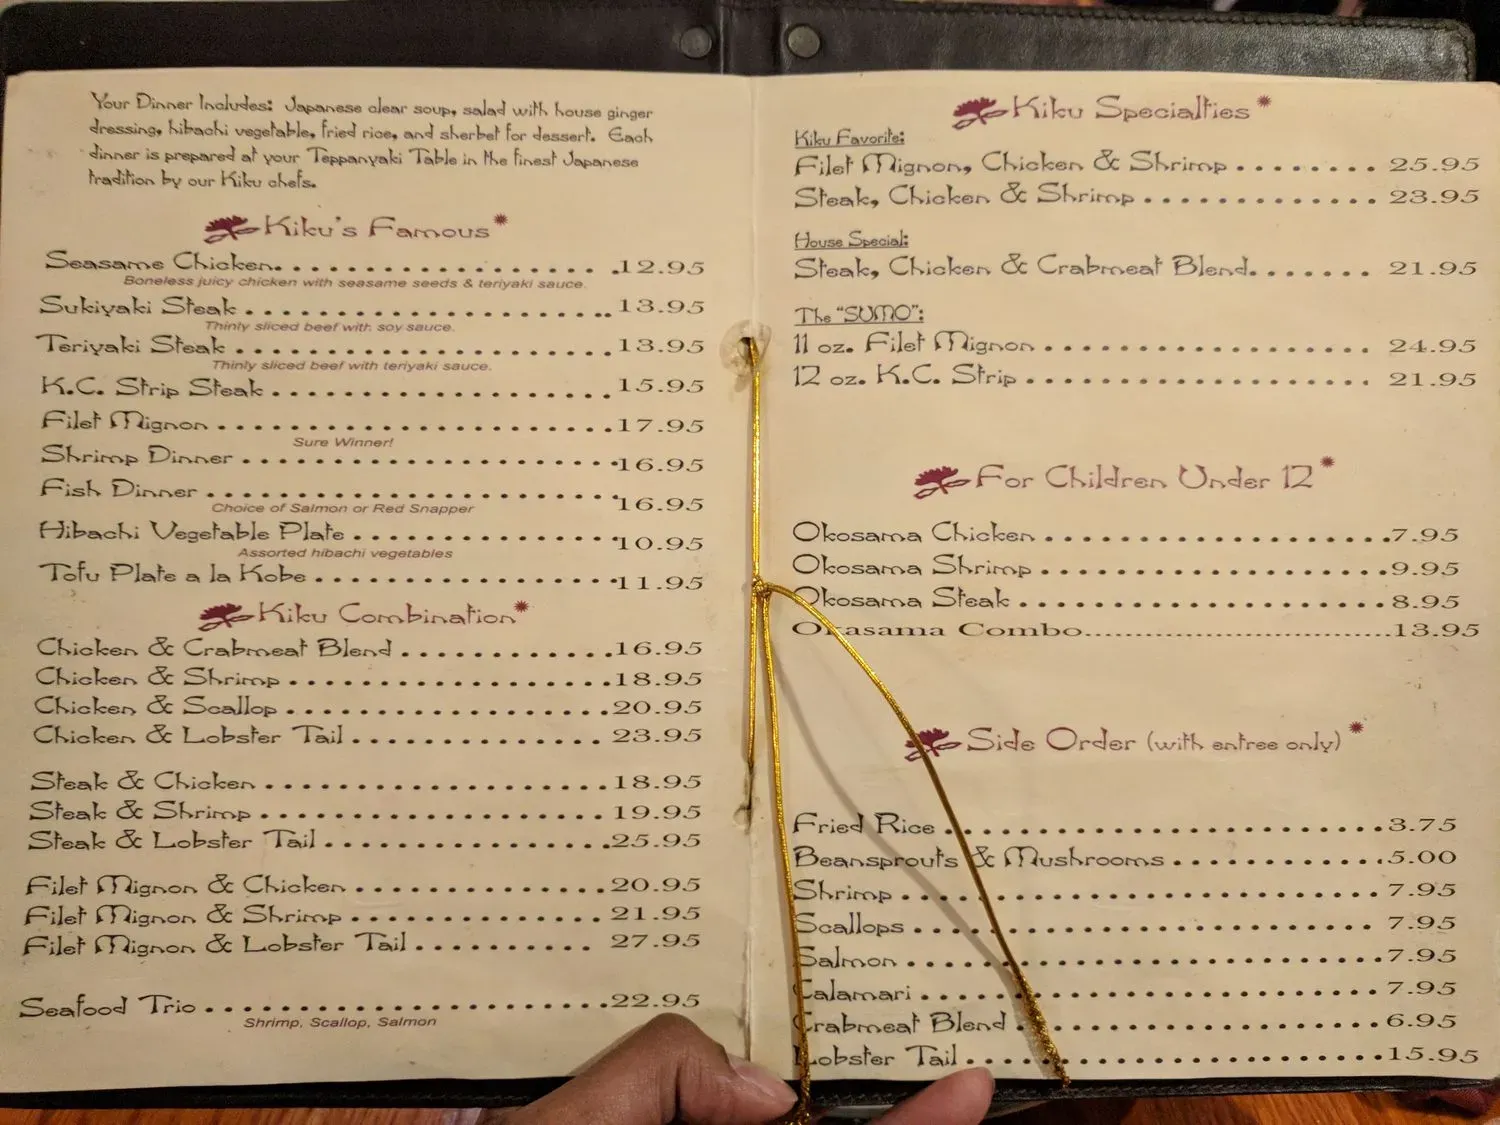 Your Dinner Includes: Japanese clear soup, salad with house ginger
dressing, hibachi vegetable, fried rice, and sherbet for dessert. Each
dinner is prepared at your Teppanyaki Table in the finest Japanese
tradition by our Kiku chefs.
Kiku's Famous
Seasame Chicken. . . . . . . . . . . . . . . . . . .12.95
Boneless juicy chicken with seasame seeds & teriyaki sauce.
Sukiyaki Steak . . . . . . . . . . . . . . . . . . . . . .13.95
Thinly sliced beef with soy sauce.
Teriyaki Steak . . . . . . . . . . . . . . . . . . . . . .13.95
Thinly sliced beef with teriyaki sauce.
K.C. Strip Steak . . . . . . . . . . . . . . . . . . . .15.95
Filet Mignon . . . . . . . . . . . . . . . . . . . . . . .17.95
Sure Winner!
Shrimp Dinner . . . . . . . . . . . . . . . . . . . . . .16.95
Fish Dinner . . . . . . . . . . . . . . . . . . . . . . . .16.95
Choice of Salmon or Red Snapper
Hibachi Vegetable Plate . . . . . . . . . . . . . . . .10.95
Assorted hibachi vegetables
Tofu Plate a la Kobe . . . . . . . . . . . . . . . . . .11.95
Kiku Combination
Chicken & Crabmeat Blend . . . . . . . . . . . . .16.95
Chicken & Shrimp . . . . . . . . . . . . . . . . . . .18.95
Chicken & Scallop . . . . . . . . . . . . . . . . . . .20.95
Chicken & Lobster Tail . . . . . . . . . . . . . . . 23.95
Steak & Chicken . . . . . . . . . . . . . . . . . . . . 18.95
Steak & Shrimp . . . . . . . . . . . . . . . . . . . . 19.95
Steak & Lobster Tail . . . . . . . . . . . . . . . . .25.95
Filet Mignon & Chicken . . . . . . . . . . . . . . .20.95
Filet Mignon & Shrimp . . . . . . . . . . . . . . . 21.95
Filet Mignon & Lobster Tail . . . . . . . . . . 27.95
Seafood Trio . . . . . . . . . . . . . . . . . . . . . . .22.95
Shrimp, Scallop, Salmon
Kiku Specialties
Kiku Favorite:
Filet Mignon, Chicken & Shrimp . . . . . . . . 25.95
Steak, Chicken & Shrimp . . . . . . . . . . . . . 23.95
House Special:
Steak, Chicken & Crabmeat Blend. . . . . . . 21.95
The "SUMO":
11 oz. Filet Mignon . . . . . . . . . . . . . . . . . . 24.95
12 oz. K.C. Strip . . . . . . . . . . . . . . . . . . . 21.95
For Children Under 12
Okosama Chicken . . . . . . . . . . . . . . . . . . . .7.95
Okosama Shrimp . . . . . . . . . . . . . . . . . . . .9.95
Okosama Steak . . . . . . . . . . . . . . . . . . . . . 8.95
Okasama Combo.................................13.95
Side Order (with entree only)
Fried Rice . . . . . . . . . . . . . . . . . . . . . . . .3.75
Beansprouts & Mushrooms . . . . . . . . . . . .5.00
Shrimp . . . . . . . . . . . . . . . . . . . . . . . . . . 7.95
Scallops . . . . . . . . . . . . . . . . . . . . . . . . . 7.95
Salmon . . . . . . . . . . . . . . . . . . . . . . . . . .7.95
Calamari . . . . . . . . . . . . . . . . . . . . . . . . .7.95
Crabmeat Blend . . . . . . . . . . . . . . . . . . . .6.95
Lobster Tail . . . . . . . . . . . . . . . . . . . . . . .15.95